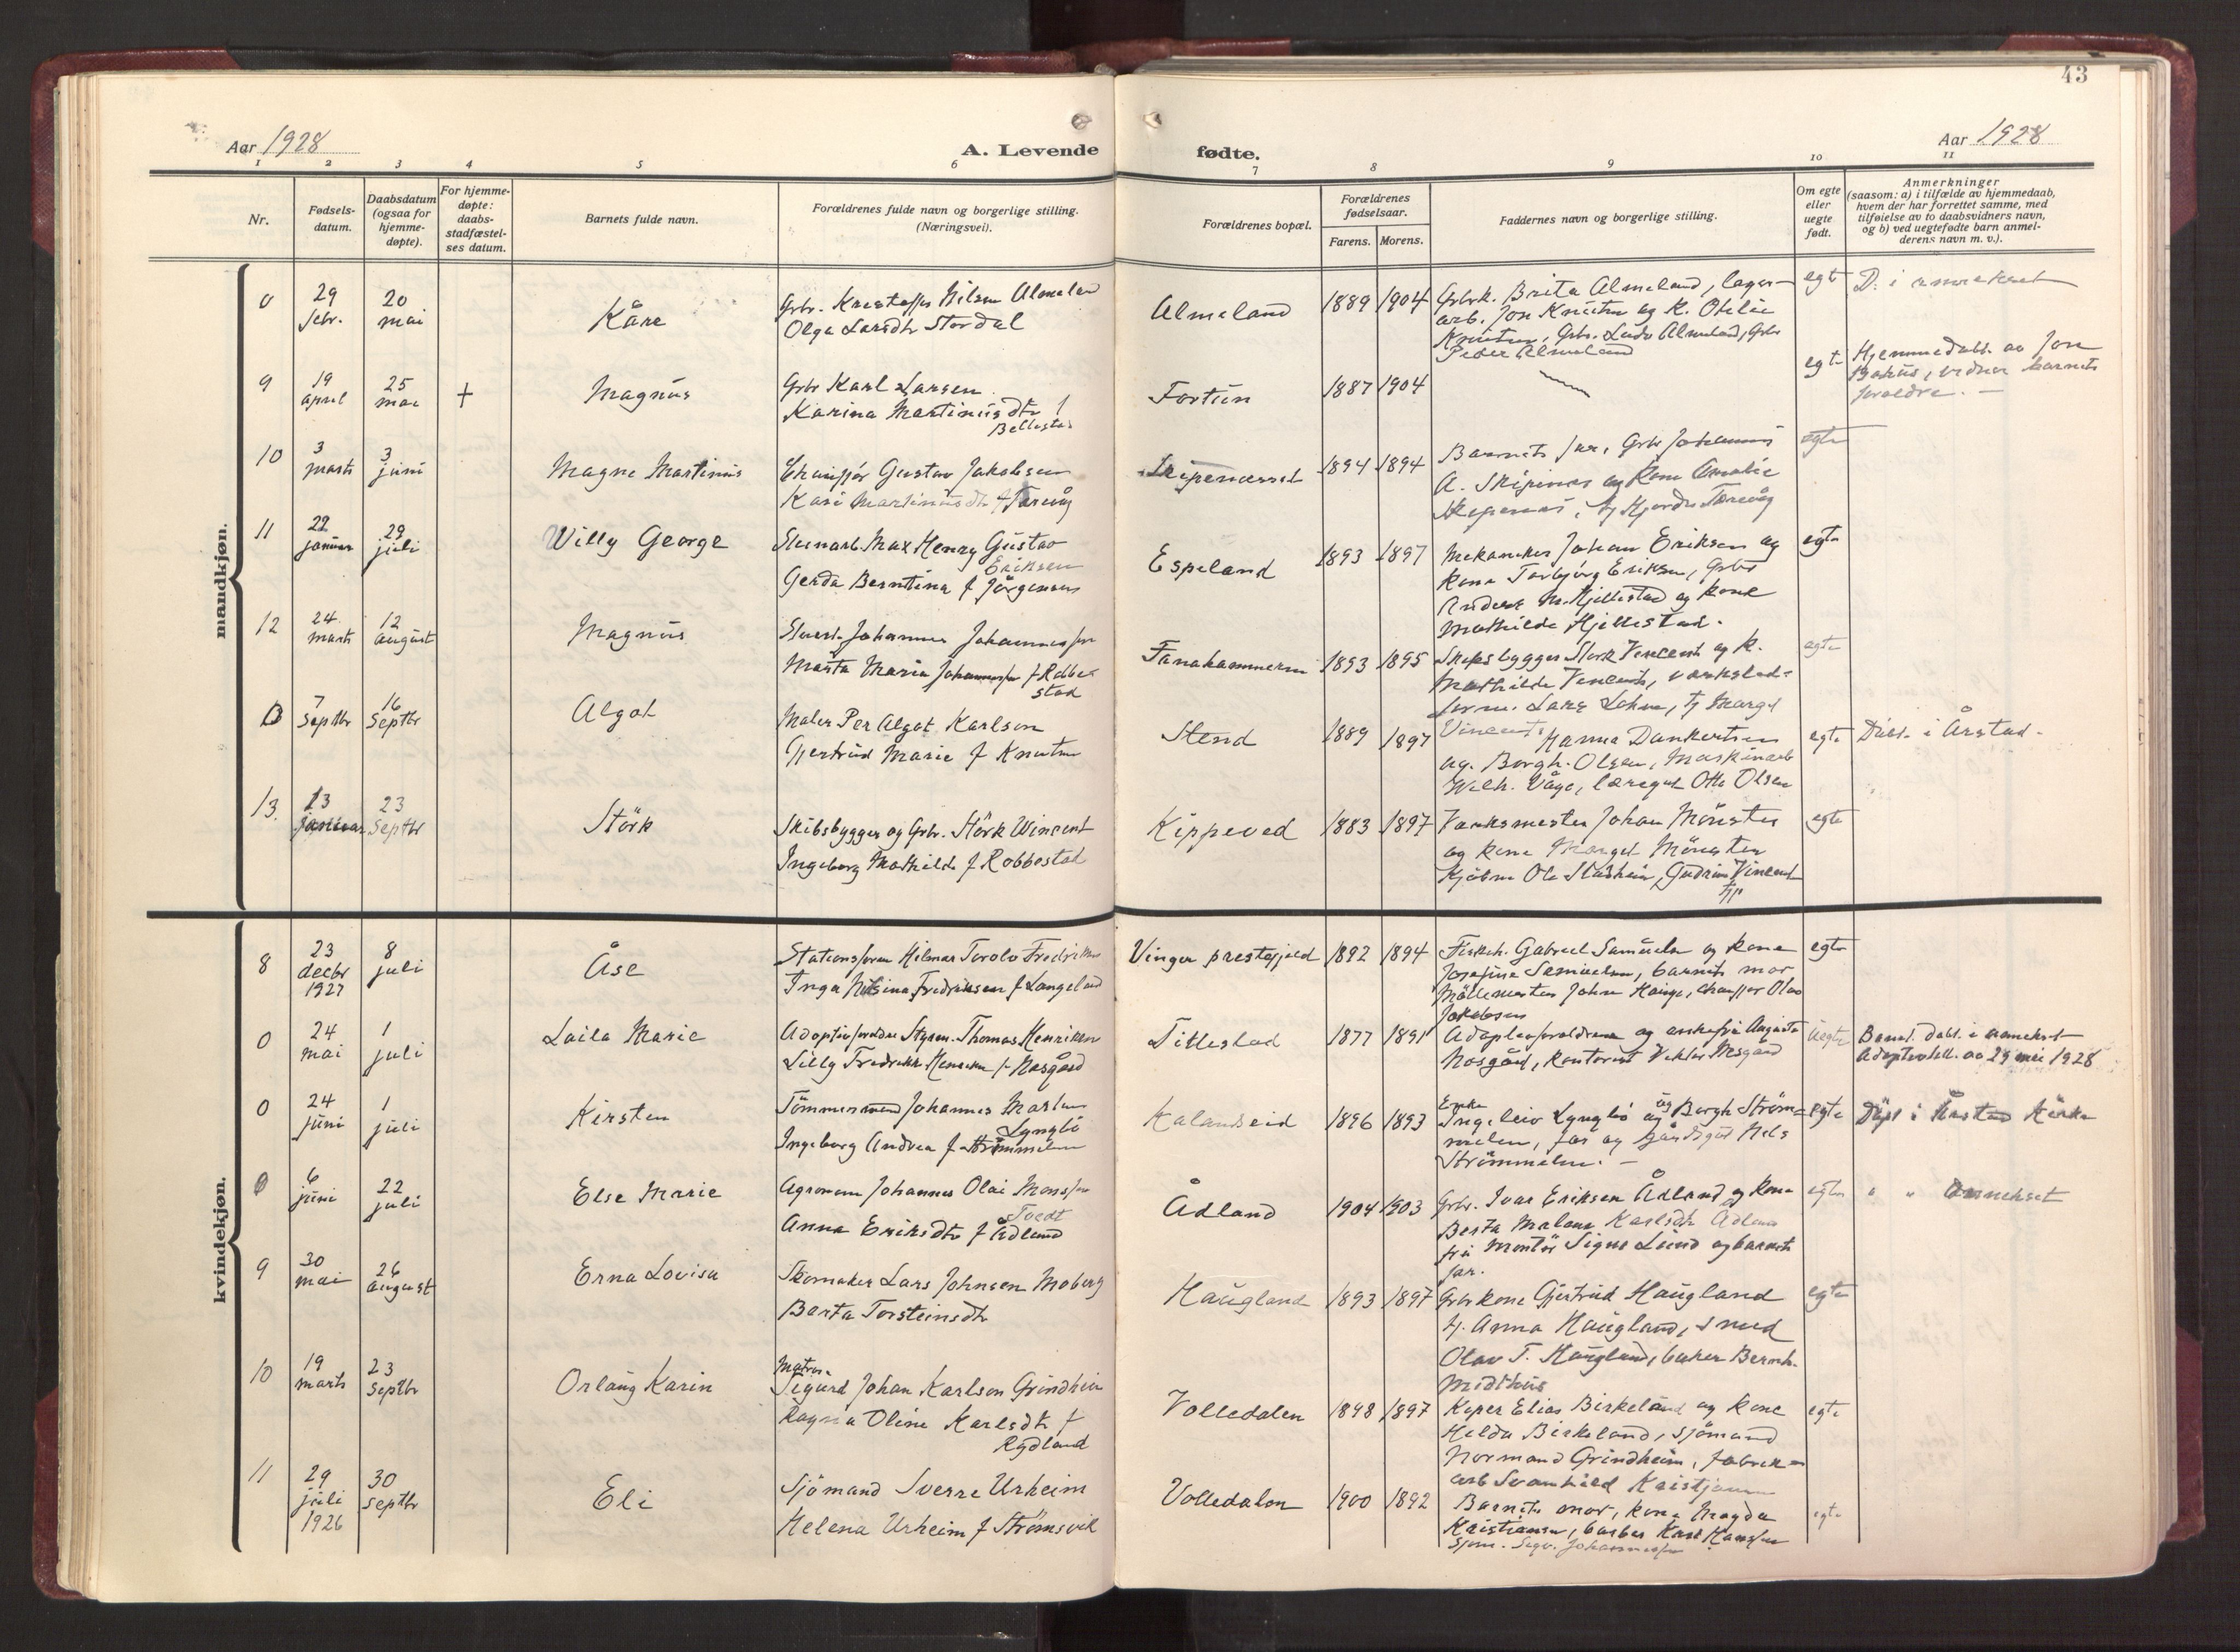 43
Aar 1928
A. Levende
fødte.
Aar 1928
1 2 3 4 5 6 7 8 9 10 11
Nr.
Fødsels-
datum.
Daabsdatum
(ogsaa for
hjemme-
døpte).
For hjemme-
døpte:
daabs-
stadfæstel-
ses datum.
Barnets fulde navn.
Forældrenes fulde navn og borgerlige stilling.
(Næringsvei).
Forældrenes bopæl.
Forældrenes
fødselsaar.
Farens. Morens.
Faddernes navn og borgerlige stilling.
Om egte
eller
uegte
født.
Anmerkninger
(saasom: a) i tilfælde av hjemmedaab,
hvem der har forrettet samme, med
tilføielse av to daabsvidners navn,
og b) ved uegtefødte barn anmel-
derens navn m. v.).
mandkjøn.
0
29
febr.
20
mai
Kåre
Grbr. Kristoffer Nilsen Almeland
Olga Larsdtr Stordal
Almeland
1889 1904
Grbrk. Brita Almeland, lager-
arb. Jon Knutsen og k. Otilie
Knutsen, Grbr. Ludv Almeland, Grbr
Peder Almeland
egte
D. i annekset
9
19
april
25
mai
+
Magnus
Grbr Karl Larsen
Karina Martinusdtr f
Bellestad
Fortun
1887 1904
egte
Hjemmedøbt av Jon
vidner barnets
foreldre. —
10
3
marts
3
juni
Magne Martinus
Chauffør Gustav Jakobsen
Kari Martinusdtr f Torevåg
Skipenesset
1894 1894
Barnets far, Grbr Johannes
A. Skipenes og kone Amalie
Skipenes, Torevåg
egte
11
22
januar
29
juli
Willy George
Stenarb. Max Henry Gustav
Eriksen
Gerda Berntina f Jörgensen
Espeland
1893 1897
Mekaniker Johan Eriksen og
kone Torbjörg Eriksen, Grbr
Anders M. Hjellestad og kone
Mathilde Hjellestad.
egte
12
24
marts
12
august
Magnus
Johannes Johannessen
Marta Marie Johannessen f Robbe-
stad
Fanahammeren
1893 1895
Skibsbygger Störk Vincent og k.
Mathilde Vincent, verksted-
form. Lars Lohne, tj Margit
Vincent
egte
0
7
Septbr
16
Septbr
Algot
Maler Per Algot Karlson
Gjertrud Marie f Knutsen
Stend
1889 1897
Hanna Dankertsen
og Borgh. Olsen, Maskinarb
Wilh. Våge, læregut Otto Olsen
egte
Døbt. i Årstad.
13.
13
Januar
23
Septbr
Störk
Skibsbygger og Grbr. Störk Wincent
Ingeborg Mathilde f Robbestad
Kippeved
1883 1897
Verksmester Johan Mönster
og kone Margit Mönster
Kjöbm Ole Stadheim, Gudrun Vincent
egte
kvindekjøn.
8
23
decbr
1927
8
juli
Åse
Stationsform Hilmar Torolv Fredriksen
Inga Nilsina Fredriksen f Langeland
Vinger prestegjeld
1892 1894
Fiskeh. Gabriel Samuelsen og kone
Josefine Samuelsen, barnets mor
Möllemester Johan Hauge, Chauffør Olav
Jakobsen
egte
0
24
mai
1
juli
Laila Marie
Adoptivforeldre Styrm. Thomas Henriksen
Lilly Fredrikke Henriksen f Nosgård
Titlestad
1877 1891
Adoptivforeldrene og enkefru Augusta
Nosgård, Kontorist Viktor Nosgård
uegte
Barnet døbt. i annekset
Adoptivbell. av 29 mai 1928
0
24
juni
1
juli
Kirsten
Tömmermand Johannes Martin
Lyngbö
Ingeborg Andrea f Strömmelen
Kalandseid
1896 1893
Enke
Ingeleiv Lyngbö og Bergh Ström-
melen, far og gårdsgut Nils
Strömmelen. —
egte
Døpt i Årstad Kirke
0
6
juni
22
juli
Else Marie
Agronom Johannes Olai Monssen
Tvedt
Anna Eriksdtr f Ådland
Ådland
1904 1903
Grbr. Ivar Eriksen Ådland og kone
Berta Malene Karlsdtr Ådland
fru Montör Signe Lund og barnets
far.
egte
" " annekset
9
30
mai
26
august
Erna Lovisa
Skomaker Lars Johnsen Moberg
Berta Torsteinsdtr
Haugland
1893 1897
Grbrkone Gjertrud Haugland
tj. Anna Haugland, smed
Olav T. Haugland, baker Bernh.
Midthus
egte
10
19
marts
23
Septbr
Orlaug Karin
Matros
Sigurd Johan Karlsen Grindheim
Ragna Oline Karlsdtr f
Rydland
Volledalen
1898 1897
Kaper Elias Birkeland og kone
Hilda Birkeland, sjömand
Normand Grindheim, fabrik-
arb Svanhild Kristjansen
egte
11
29
juli
1926
30
septbr
Eli
Sjömand Sverre Urheim
Helena Urheim f Strömsvik
Volledalen
1900 1892
Barnets mor, kone Magda
Kristiansen, barber Karl Hanssen
Sjöm. Sigv. Johannessen
egte